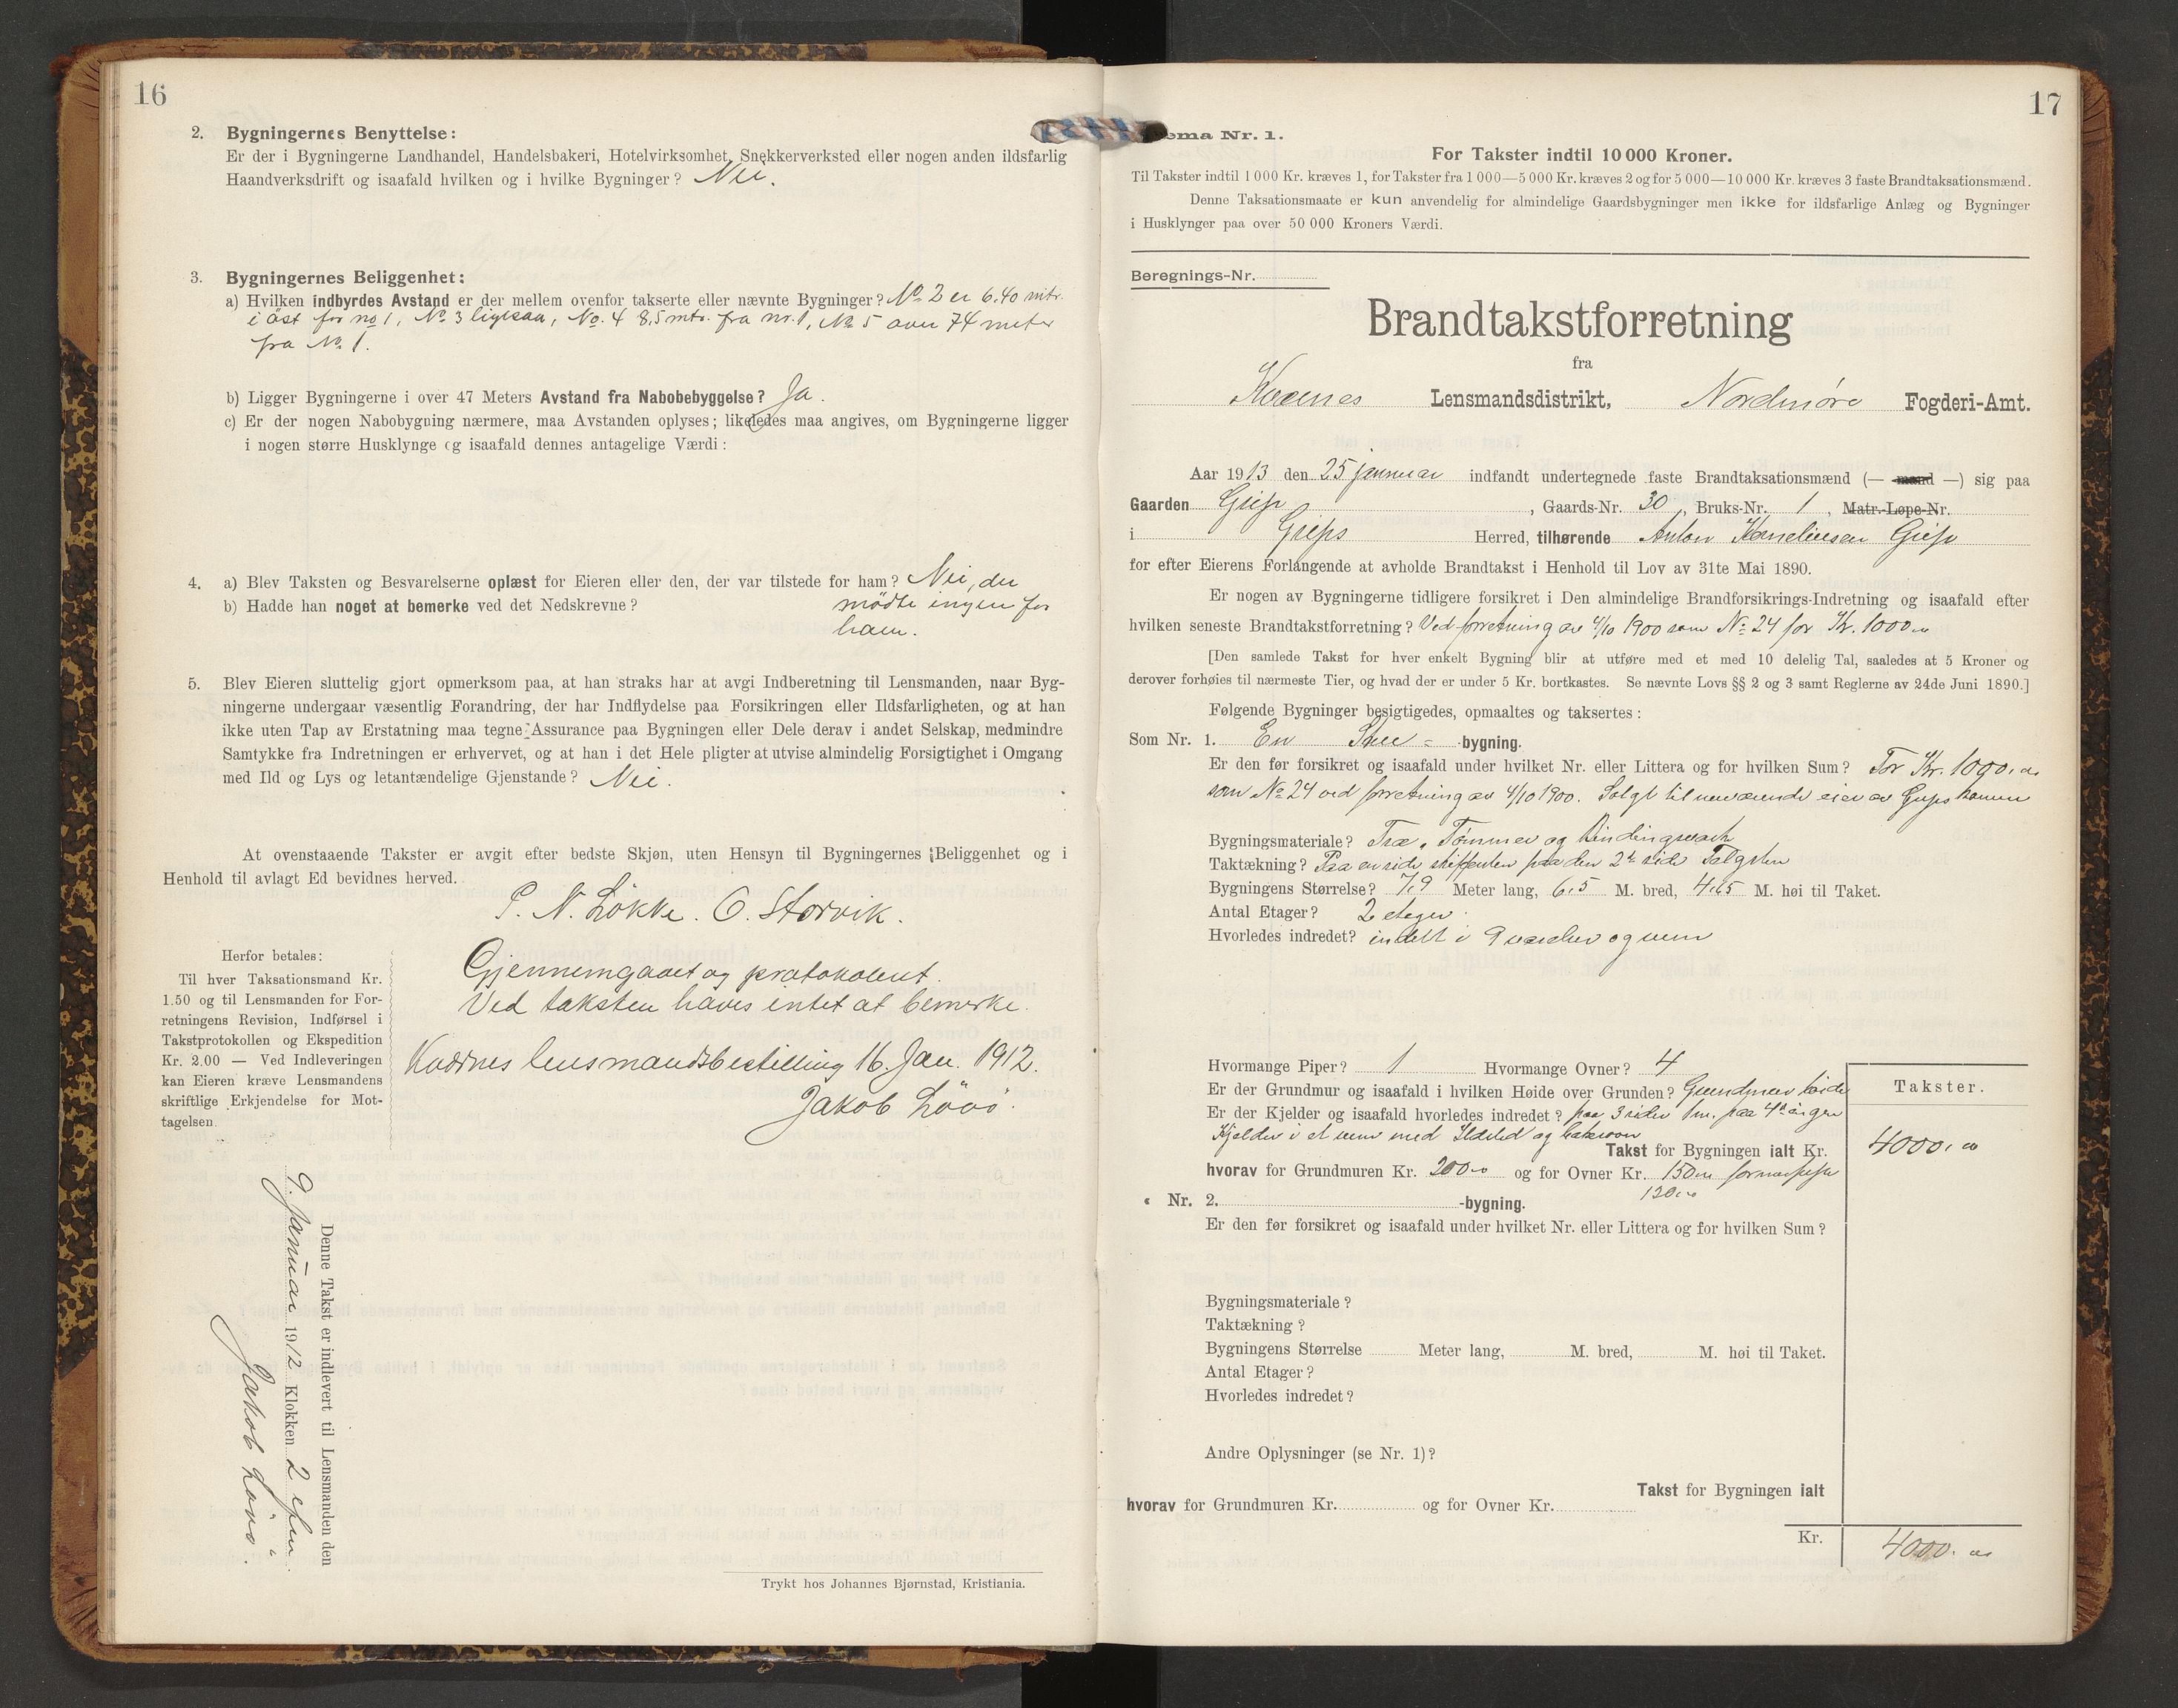 16
2. Bygningernes Benyttelse:
Er der i Bygningerne Landhandel, Handelsbakeri, Hotelvirksomhet, Snękkerverksted eller nogen anden ildsfarlig
Haandverksdrift og isaafald hvilken og i hvilke Bygninger? Nei.
3. Bygningernes Beliggenhet:
a) Hvilken indbyrdes Avstand er der mellem ovenfor takserte eller nævnte Bygninger? No 2 er 6.40 mtr.
i öst for no 1, No 3 ligesaa, No. 4 8,5 mtr. fra nr. 1, No 5 over 74 meter
fra No 1.
b) Ligger Bygningerne i over 47 Meters Avstand fra Nabobebyggelse? Ja.
c) Er der nogen Nabobygning nærmere, maa Avstanden oplyses; likeledes maa angives, om Bygningerne ligger
i nogen større Husklynge og isaafald dennes antagelige Værdi:
4. a) Blev Taksten og Besvarelserne oplæst for Eieren eller den, der var tilstede for ham? Nei, der
b) Hadde han noget at bemerke ved det Nedskrevne? mödte ingen for
ham.
5. Blev Eieren sluttelig gjort opmerksom paa, at han straks har at avgi Indberetning til Lensmanden, naar Byg-
ningerne undergaar væsentlig Forandring, der har Indflydelse paa Forsikringen eller Ildsfarligheten, og at han
ikke uten Tap av Erstatning maa tegne Assurance paa Bygningen eller Dele derav i andet Selskap, medmindre
Samtykke fra Indretningen er erhvervet, og at han i det Hele pligter at utvise almindelig Forsigtighet i Omgang
med Ild og Lys og letantændelige Gjenstande? Nei.
At ovenstaaende Takster er avgit efter bedste Skjøn, uten Hensyn til Bygningernes Beliggenhet og i
Henhold til avlagt Ed bevidnes herved.
P. N. Lökke. O. Storvik.
Herfor betales:
Til hver Taksationsmand Kr.
1.50 og til Lensmanden for For-
retningens Revision, Indførsel i
Takstprotokollen og Ekspedition
Kr. 2.00 — Ved Indleveringen
kan Eieren kræve Lensmandens
skriftlige Erkjendelse for Mot-
tagelsen.
Gjennemgaaet og protokolert.
Ved taksten haves intet at bemerke.
Kvernes lensmandsbestilling 16. Jan. 1912.
Jakob Lövö.
Denne Takst er indlevert til Lensmanden den
9. Januar 1912 Klokken 2 efm.
Jakob Lövö.
Trykt hos Johannes Bjørnstad, Kristiania.
17
ema Nr. 1.
For Takster indtil 10 000 Kroner.
Til Takster indtil 1 000 Kr. kræves 1, for Takster fra 1 000—5 000 Kr. kræves 2 og for 5 000—10 000 Kr. kræves 3 faste Brandtaksationsmænd.
Denne Taksationsmaate er kun anvendelig for almindelige Gaardsbygninger men ikke for ildsfarlige Anlæg og Bygninger
i Husklynger paa over 50 000 Kroners Værdi.
Beregnings-Nr.
Brandtakstforretning
fra
Kvernes Lensmandsdistrikt, Nordmøre Fogderi-Amt.
Aar 1913 den 25 januar indfandt undertegnede faste Brandtaksationsmænd (— mand —) sig paa
Gaarden Grip, Gaards-Nr. 30, Bruks-Nr. 1, Matr.-Løpe-Nr.
i Grips Herred, tilhørende Anton Korneliusen Grip
for efter Eierens Forlangende at avholde Brandtakst i Henhold til Lov av 31te Mai 1890.
Er nogen av Bygningerne tidligere forsikret i Den almindelige Brandforsikrings-Indretning og isaafald efter
hvilken seneste Brandtakstforretning? Ved forretning av 4/10 1900 som No 24 for Kr. 1000
[Den samlede Takst for hver enkelt Bygning blir at utføre med et med 10 delelig Tal, saaledes at 5 Kroner og
derover forhøies til nærmeste Tier, og hvad der er under 5 Kr. bortkastes. Se nævnte Lovs §§ 2 og 3 samt Reglerne av 24de Juni 1890.]
Følgende Bygninger besigtigedes, opmaaltes og taksertes:
Som Nr. 1. En Stue- -bygning.
Er den før forsikret og isaafald under hvilket Nr. eller Littera og for hvilken Sum? For Kr. 1000.
som No 24 ved forretning av 4/10 1900. Solgt til nuværende eier av Grips
Bygningsmateriale? Træ, Tømmer og bindingsverk
Taktækning? Paa en side skiffersten paa den 2de side
Bygningens Størrelse? 7,9 Meter lang, 6,5 M. bred, 4,65 M. høi til Taket.
Antal Etager? 2 etager
Hvorledes indredet? indelt i 9 værelser og
Hvormange Piper? 1 Hvormange Ovner? 4
Er der Grundmur og isaafald i hvilken Høide over Grunden? Grundmur höide
Er der Kjelder og isaafald hvorledes indredet? paa 3 sider 1m. paa 4de
Kjelder i et rum med Ildsted og bakerovn
Takst for Bygningen ialt Kr.
hvorav for Grundmuren Kr. 200 og for Ovner Kr. 150
120
Takster.
4000.
Nr. 2. -bygning.
Er den før forsikret og isaafald under hvilket Nr. eller Littera og for hvilken Sum?
Bygningsmateriale?
Taktækning?
Bygningens Størrelse Meter lang, M. bred, M. høi til Taket.
Antal Etager?
Hvorledes indredet?
Andre Oplysninger (se Nr. 1)?
Takst for Bygningen ialt
hvorav for Grundmuren Kr. og for Ovner Kr.
Kr. 4000.